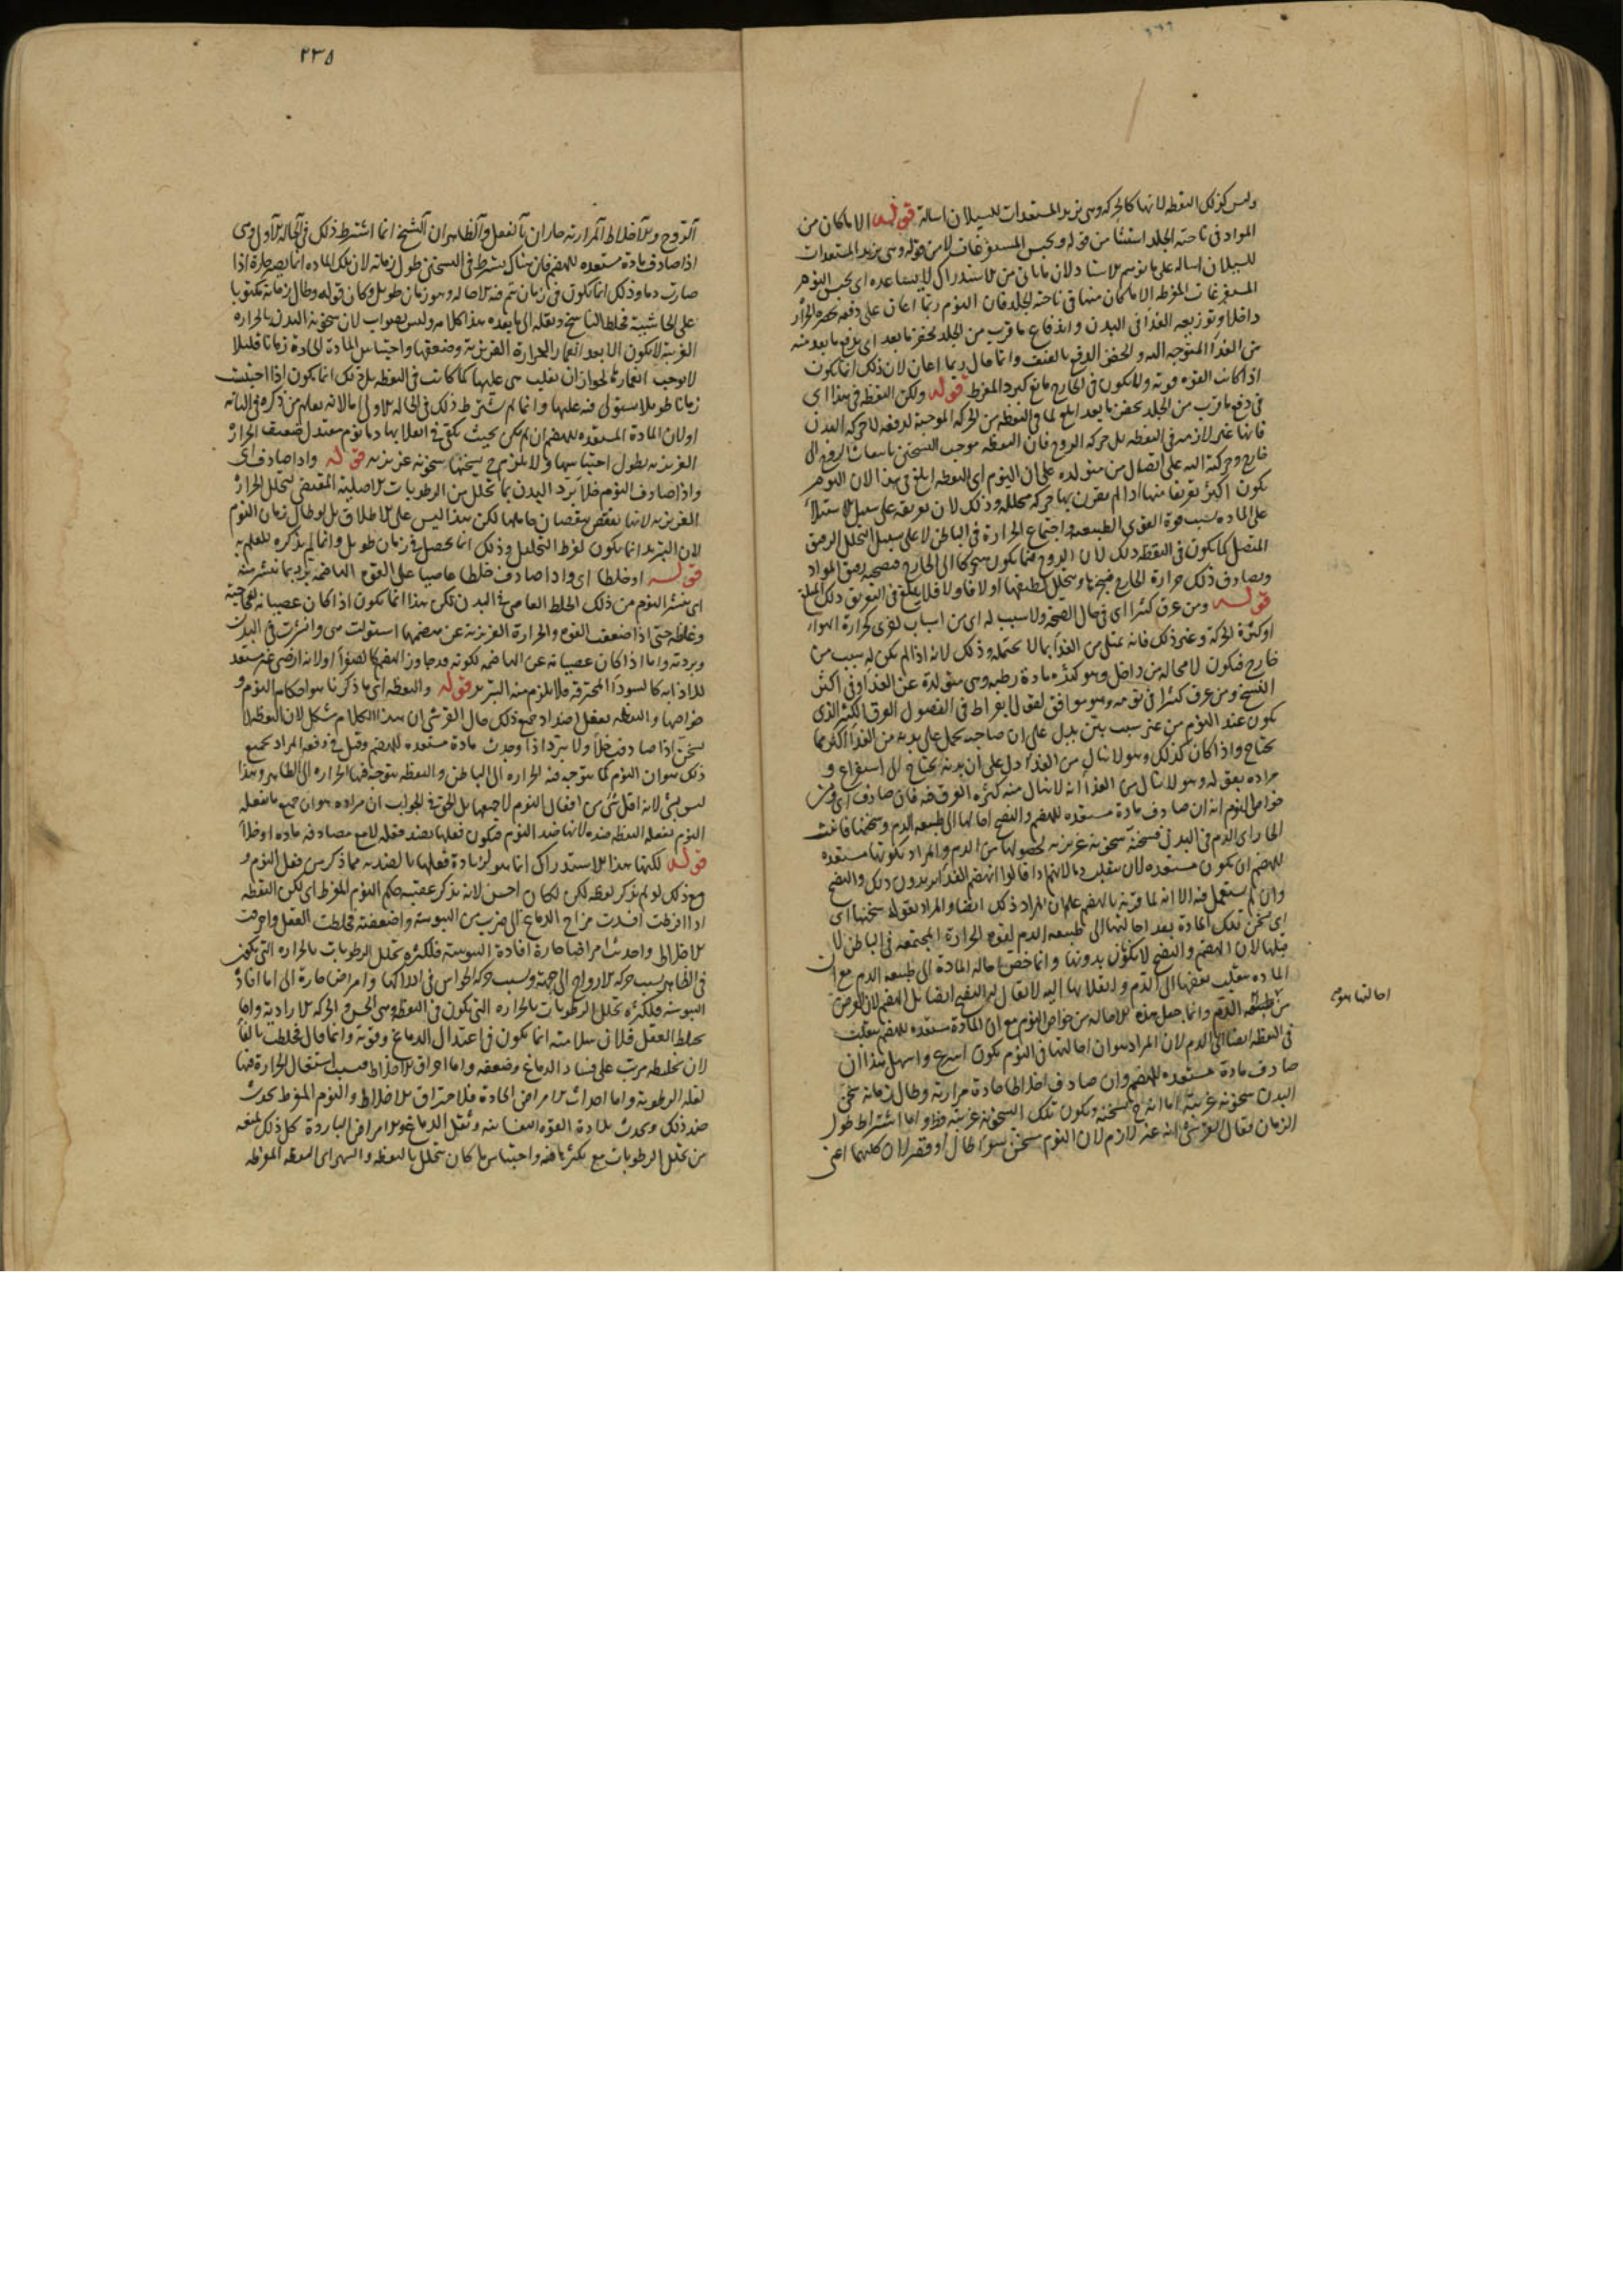 وليس كذلك اليقظة لانها كالحركة وهى تزيد المستعدات للسيلان اسالة قوله الا ما كان من
المواد فى ناحية الجلد استثنا من قوله ويحبس المستفرغات لا من قوله وهى تزيد المستعدات
للسيلان اسالة على ما توهم لان ما باتى من الاستدراك لا يساعده اى يحبس النوم
المستفرغات المفرطة الا ما كان منها فى ناحية الجلد فان النوم ربما اعان على دفعه بحصره الحرار
داخلا وتوزيعه الغذا فى البدن واندفاع ما قرب من الجلد بحفز ما بعد اى بدفع ما بعد منه
من الغذا المتوجه اليه والحفز الدفع بالعنف وانما قال ربما اعان لان ذلك انما يكون
اذا كانت القوة قوية ولا يكون فى الخارج مانع كبرد المفرط قوله ولكن اليقظة فى هذا اى
فى دفع ما قرب من الجلد بحفز ما بعد ابلغ لما فى اليقظة من الحركة الموجبة لدفعه لا حركة البدن
فانها غير لازمة فى اليقظة بل حركة الروح فان اليقظة موجب التسخين بانبعاث الروح الى
خارج وحركته اليه على اتصال من متولده على ان النوم اى اليقظة ابلغ فى هذا لان النوم
يكون اكثر تعريقا منها اذا لم يقرن بها حركة محللة وذلك لان تعريقه على سبيل الاستيلا
على المادة بسبب قوة القوى الطبيعية واجتماع الحرارة فى الباطن لا على سبيل التحلل الرقيق
المتصل كما يكون فى اليقظة ذلك لان الروح فيها يكون متحركا الى الخارج فيصحبه رقيق المواد
ويصادف ذلك حرارة الخارج فيبخرها ويتحلل لطيفها اولا فاولا فلا يبلغ فى التعريق ذلك المبلغ
قوله ومن عرق كثيرا اى فى حال الصحة ولا سبب له اى من اسباب اخرى كحرارة الهوا
او كثرة الحركة وغير ذلك فانه يمتلى من الغذا بما لا يحتمله وذلك لانه اذا لم يكن له سبب من
خارج فيكون لا محالة من داخل وهو كثرة مادة رطبة وهى متولدة عن الغذا وفى اكثر
النسخ ومن عرق كثيرا فى نومه وهو موافق لقول ابقراط فى الفصول العرق الكثير الذى
يكون عند النوم من غير سبب بين يدل على ان صاحبه يحمل على بدنه من الغذا اكثر مما
يحتاج واذا كان كذلك وهو لا ينال من الغذا دل على ان بدنه يحتاج الى استفراغ و
مراده بقوله وهو لا ينال من الغذا انه لا ينال منه كثرة العرق فيه فان صادف اى ومن
خواص النوم انه ان صادف مادة مستعدة للهضم والنضج احالها الى طبيعة الدم وسخنها فانبث
الحار اى الدم فى البدن فسخنه سخونة غريزية لحصولها من الدم والمراد بكونها مستعدة
للهضم ان تكون مستعدة لان تنقلب دما لانهم اذا قالوا انهضم الغذا يريدون ذلك والنضج
وان لم يستعمل فيه الا انه لما قرنه بالهضم علم ان المراد ذلك ايضا والمراد بقوله سخنها اى
اى سخن تلك المادة بعد احالتها الى طبيعة الدم لقوة الحرارة المجتمعة فى الباطن لا
قبلها لان الهضم والنضج لا يكون بدونها وانما خص احالة المادة الى طبيعة الدم مع ان
المادة ينقلب بعضها الى الدم وانقلابها اليه لا يقال له النضج ايضا بل الهضم لان الغرض
من طبيعة الدم وانما جعل هذه الاحالة من خواص النوم مع ان المادة مستعدة للهضم ينقلب
فى اليقظة ايضا الى الدم لان المراد هو ان احالتها فى النوم يكون اسرع واسهل هذا ان
صادف مادة مستعدة للهضم وان صادف اخلاطا حادة مرارية وطال زمانه سخن
البدن سخونة غريبة اما انه يسخنه ويكون تلك السخونة غريبة فظ واما اشتراط طول
الزمان فقال القرشى انه غير لازم لان النوم يسخن سوا طال او قصر لان كليهما اعنى
احالتها هو
٢٣٥
الروح والاخلاط المرارية حاران بالفعل والظاهر ان الشيخ انما اشترط ذلك فى الحالة الاولى وهى
اذا صادف مادة مستعدة للهضم فان هناك يشترط فى التسخين طول زمانه لان تلك المادة انما يصير حارة اذا
صارت دما وذلك انما يكون فى زمان يتم فيه الاحالة وهو زمان طويل وكان قوله وطال زمانه مكتوبا
على الحاشية فخلط الناسخ ونقله الى ما بعده هذا كلامه وليس بصواب لان سخونة البدن بالحرارة
الغريبة لا يكون الا بعد انغمار الحرارة الغريزية وضعفها واحتباس المادة الحادة زمانا قليلا
لا يوجب انغماره لجواز ان يغلب هى عليها كما كانت فى اليقظة بل ذلك انما يكون اذا احتبست
زمانا طويلا يستولى فيه عليها وانما لم يشترط ذلك فى الحالة الاولى اما لانه يعلم من ذكره فى الثانية
او لان المادة المستعدة للهضم ان لم يكن بحيث يكفى فى انقلابها دما نوم معتدل لضعيف الحرار
الغريزية بطول احتباسها ولا يلزم ح تسخنها سخونة غريزية قوله واذا صادف اى
واذا صادف النوم خلا برد البدن بما تحلل من الرطوبات الاصلية المقتضى لتحلل الحرار
الغريزية لانها ينقص بنقصان حاملها لكن هذا ليس على الاطلاق بل لو طال زمان النوم
لان التبريد انما يكون لفرط التحليل وذلك انما يحصل فى زمان طويل وانما لم يذكره للعلم به
قوله او خلطا اى واذا صادف خلطا عاصيا على القوة الهاضمة برد بما ينشر منه
اى ينشر النوم من ذلك الخلط العاصى فى البدن لكن هذا انما يكون اذا كان عصيانه لفجاجته
وغلظه حتى اذا ضعفت القوة والحرارة الغريزية عن هضمها استولت هى وانشرت فى البدن
وبردته واما اذا كان عصيانه عن الهاضمة لكونه قد جاوز الهضم كالصفرا او لانه ارضى غير مستعد
للاذابة كالسودا المحترقة فلا يلزم منه التبريد قوله واليقظة اى ما ذكرنا هو احكام النوم و
خواصها واليقظة يفعل اضداد جميع ذلك قال القرشى ان هذا الكلام مشكل لان اليقظة لا
يسخن اذا صادفت خلا ولا يبرد اذا وجدت مادة مستعدة للهضم وقيل فى دفعه المراد بجميع
ذلك هو ان النوم كما يتوجه فيه الحرارة الى الباطن واليقظة يتوجه فيها الحرارة الى الظاهر وهذا
ليس بشى لانه اقل شى من افعال النوم لا جميعها بل الحق فى الجواب ان مراده هو ان جميع ما يفعله
النوم يفعله اليقظة ضده لانها ضد النوم فيكون فعلها بضد فعله لا مع مصادفة مادة او خلا
قوله لكنها هذا الاستدراك انما هو لزيادة فعلها بالضدية مما ذكر من فعل النوم و
مع ذلك لو لم يذكر لفظة لكن لكان احسن لانه يذكر عقيبه حكم النوم المفرط اى لكن اليقظة
اذا افرطت افسدت مزاج الدماغ الى ضرب من اليبوسة واضعفته فخلطت العقل واحرقت
الاخلاط واحدثت امراضا حادة افادة اليبوسة فلكثرة تحلل الرطوبات بالحرارة التى يكون
فى الظاهر بسبب حركة الارواح الى جهته وبسبب حركة الحواس فى ادراكها وامراضا حارة الى اما افاد
اليبوسة فلكثرة تحلل الرطوبات بالحرارة التى تكون فى اليقظة وهى الحس والحركة الارادية واما
تخليط العقل فلان سلامته انما يكون فى اعتدال الدماغ وقوته وانما قال فخلطت بالفا
لان تخليطه مرتب على فساد الدماغ وضعفه واما احراق الاخلاط فبسبب اشتعال الحرارة فيها
لقلة الرطوبة واما احداث الامراض الحادة فلاحتراق الاخلاط والنوم المفرط يحدث
ضد ذلك ويحدث بلادة القوة النفسانية وثقل الدماغ والامراض الباردة كل ذلك لمنعه
من تحلل الرطوبات مع تكثيرها فيه واحتباس ما كان يتحلل باليقظة والسهر اى اليقظة المفرطة